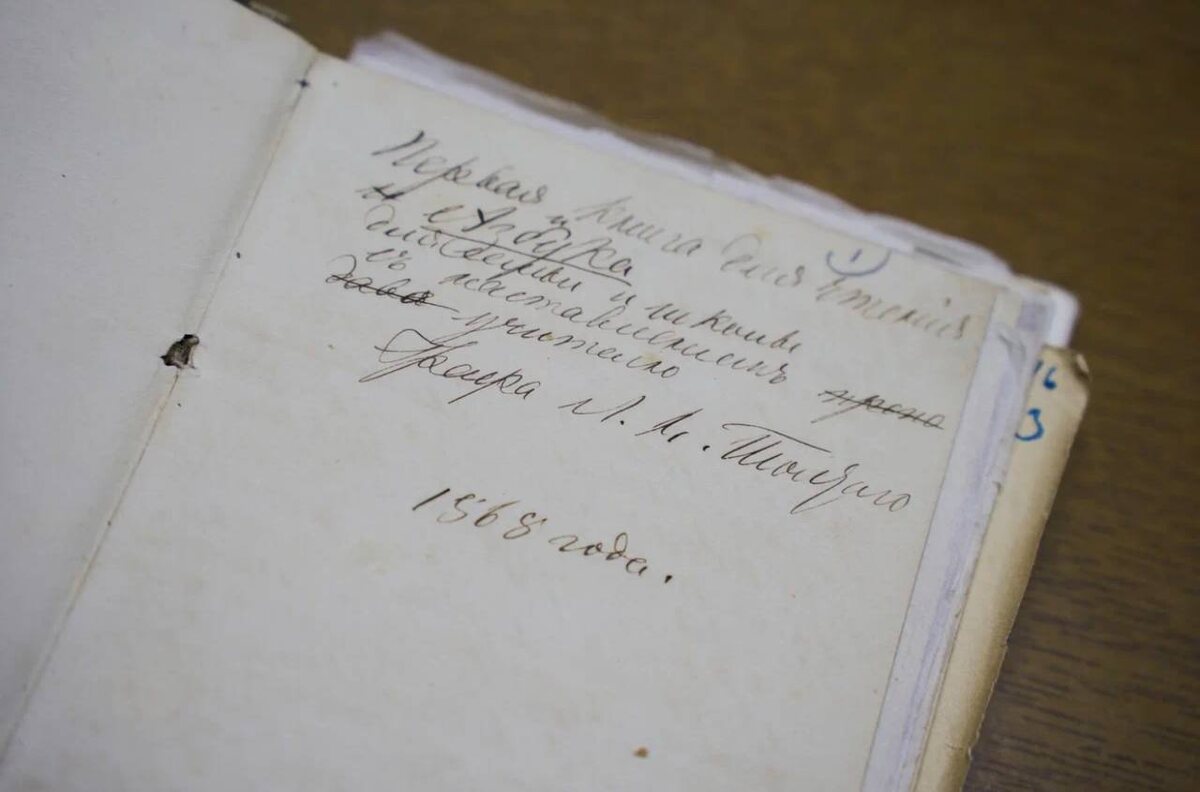 Первая книга для чтенія
и Азбука
для семьи и школы
съ наставленіемъ
учителю
Графа Л. Н. Толстаго
1868 года.
1
16
3